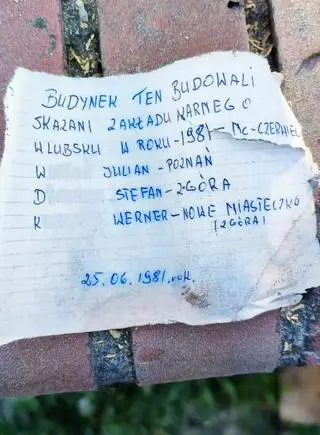 BUDYNEK TEN BUDOWALI
SKAZANI ZAKŁADU KARNEGO
W LUBSKU W ROKU-1981-MC-CZERWIEC
W JULIAN-POZNAŃ
D STEFAN-Z-GÓRA
K WERNER-NOWE MIASTECZKO
(Z GÓRA)
25.06.1981.rok.